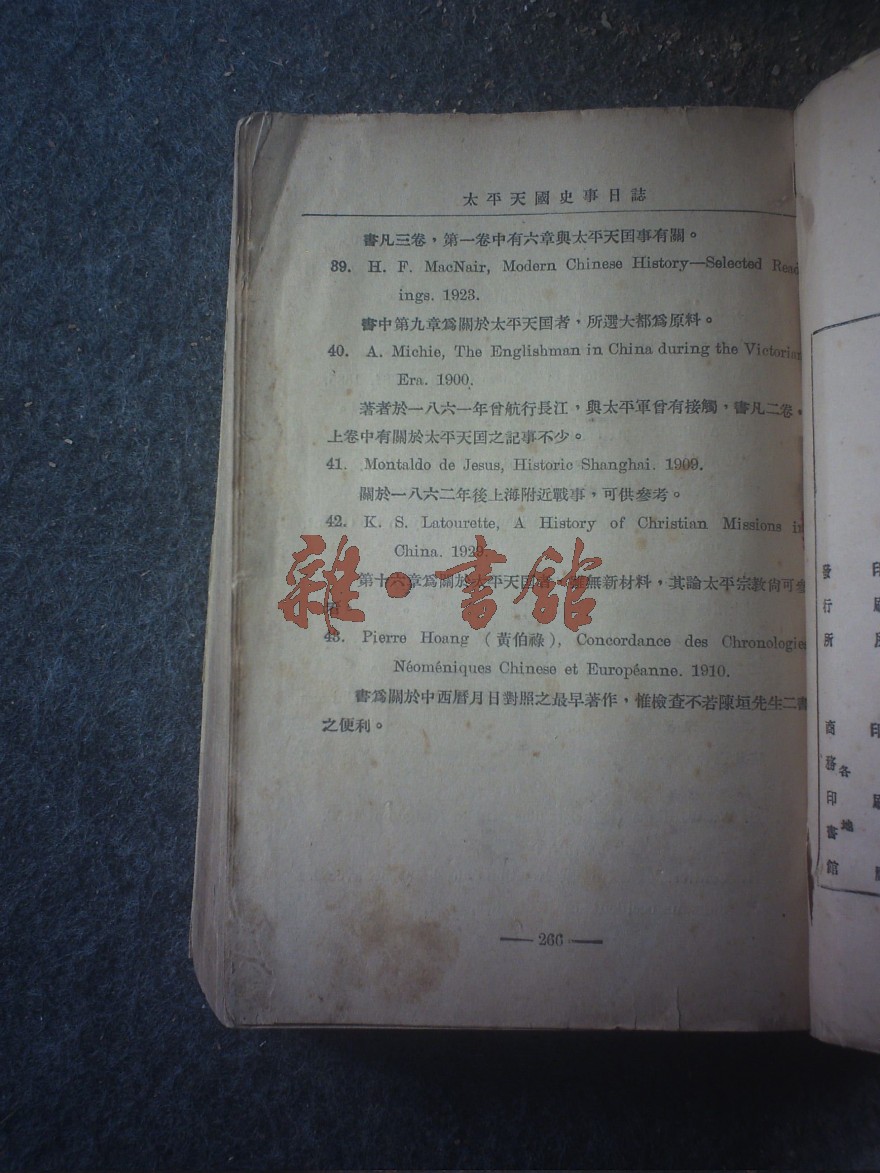 太平天國史事日誌
書凡三卷，第一卷中有六章與太平天囯事有關。
39. H. F. MacNair, Modern Chinese History—Selected Read
ings. 1923.
書中第九章爲關於太平天囯者，所選大都爲原料。
40. A. Michie, The Englishman in China during the Victorian
Era. 1900.
著者於一八六一年曾航行長江，與太平軍曾有接觸，書凡二卷，
上卷中有關於太平天囯之記事不少。
41. Montaldo de Jesus, Historic Shanghai. 1909.
關於一八六二年後上海附近戰事，可供參考。
42. K. S. Latourette, A History of Christian Missions in
China. 1929.
第十六章爲關於太平天囯者，無新材料，其論太平宗教尙可參
43. Pierre Hoang (黃伯祿), Concordance des Chronologie
Néoméniques Chinese et Européanne. 1910.
書爲關於中西曆月日對照之最早著作，惟檢查不若陳垣先生二書
之便利。
— 266 —
雜·書館
發行所
商務印書館
各地
印
印